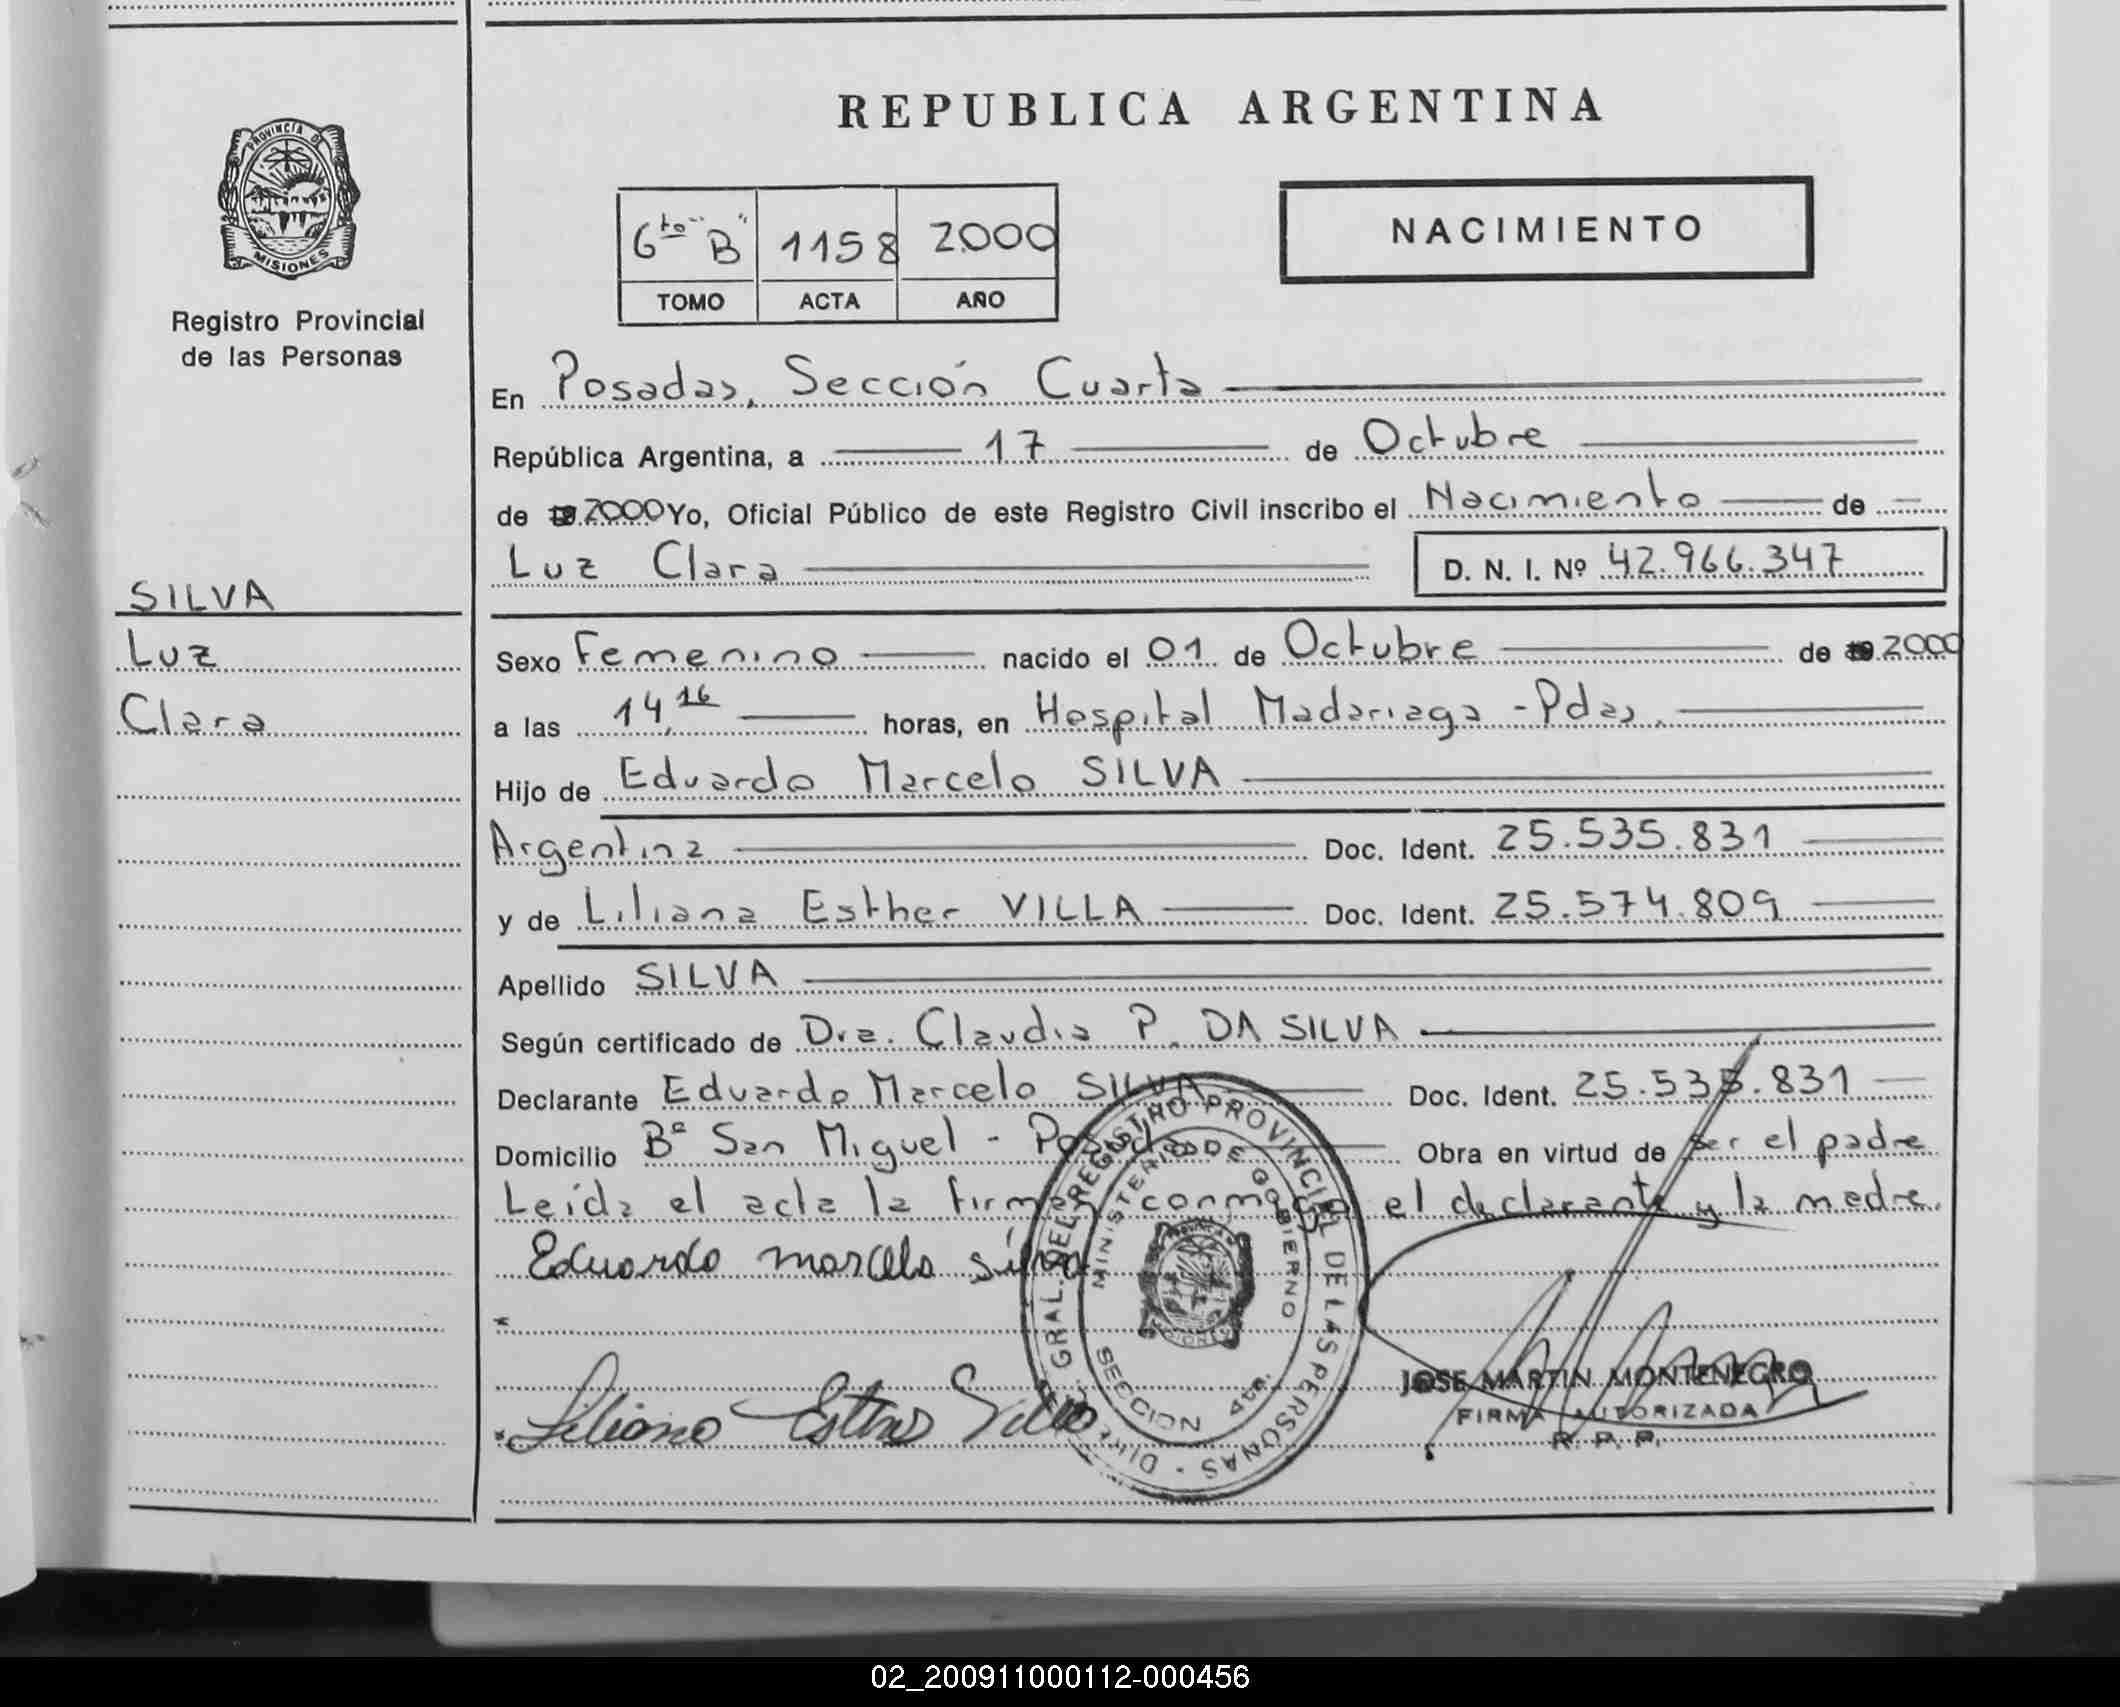 REPUBLICA ARGENTINA
PROVINCIA DE
MISIONES
Registro Provincial
de las Personas
6to "B" 1158 2000
TOMO ACTA AÑO
NACIMIENTO
En Posadas, Sección Cuarta
República Argentina, a 17 de Octubre
de 2000 Yo, Oficial Público de este Registro Civil inscribo el Nacimiento de
Luz Clara D. N. I. Nº 42.966.347
SILVA
Luz
Clara
Sexo Femenino nacido el 01 de Octubre de 2000
a las 14,16 horas, en Hospital Madariaga - Pdas.
Hijo de Eduardo Marcelo SILVA
Argentina Doc. Ident. 25.535.831
y de Liliana Esther VILLA Doc. Ident. 25.574.809
Apellido SILVA
Según certificado de Dra. Claudia P. DA SILVA
Declarante Eduardo Marcelo SILVA Doc. Ident. 25.535.831
Domicilio Bº San Miguel - Posadas Obra en virtud de ser el padre
Leída el acta la firman conmigo el declarante y la madre.
Eduardo marcelo silva
Liliana Esther Villa
DIR. GRAL. DEL REGISTRO PROVINCIAL DE LAS PERSONAS
MINISTERIO DE GOBIERNO
SECCION 4ta.
JOSE MARTIN MONTENEGRO
FIRMA AUTORIZADA
R. P. P.
02_200911000112-000456